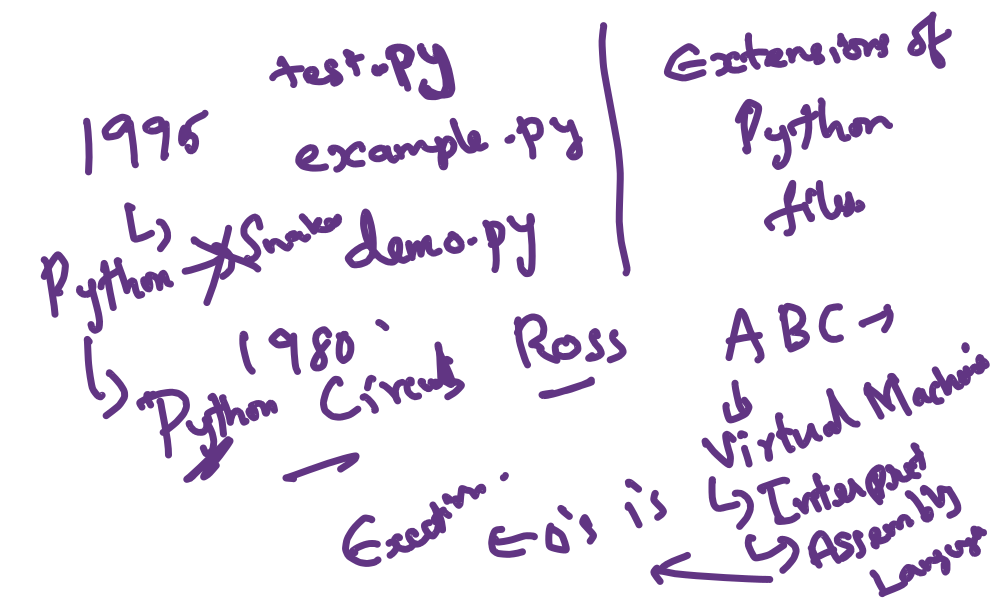 test.py
example.py
demo.py
Extensions of
Python
files
1995
Python Snake
1980's
Python Circus
Ross
ABC
Virtual Machine
Interpret
Assembly
Language
is